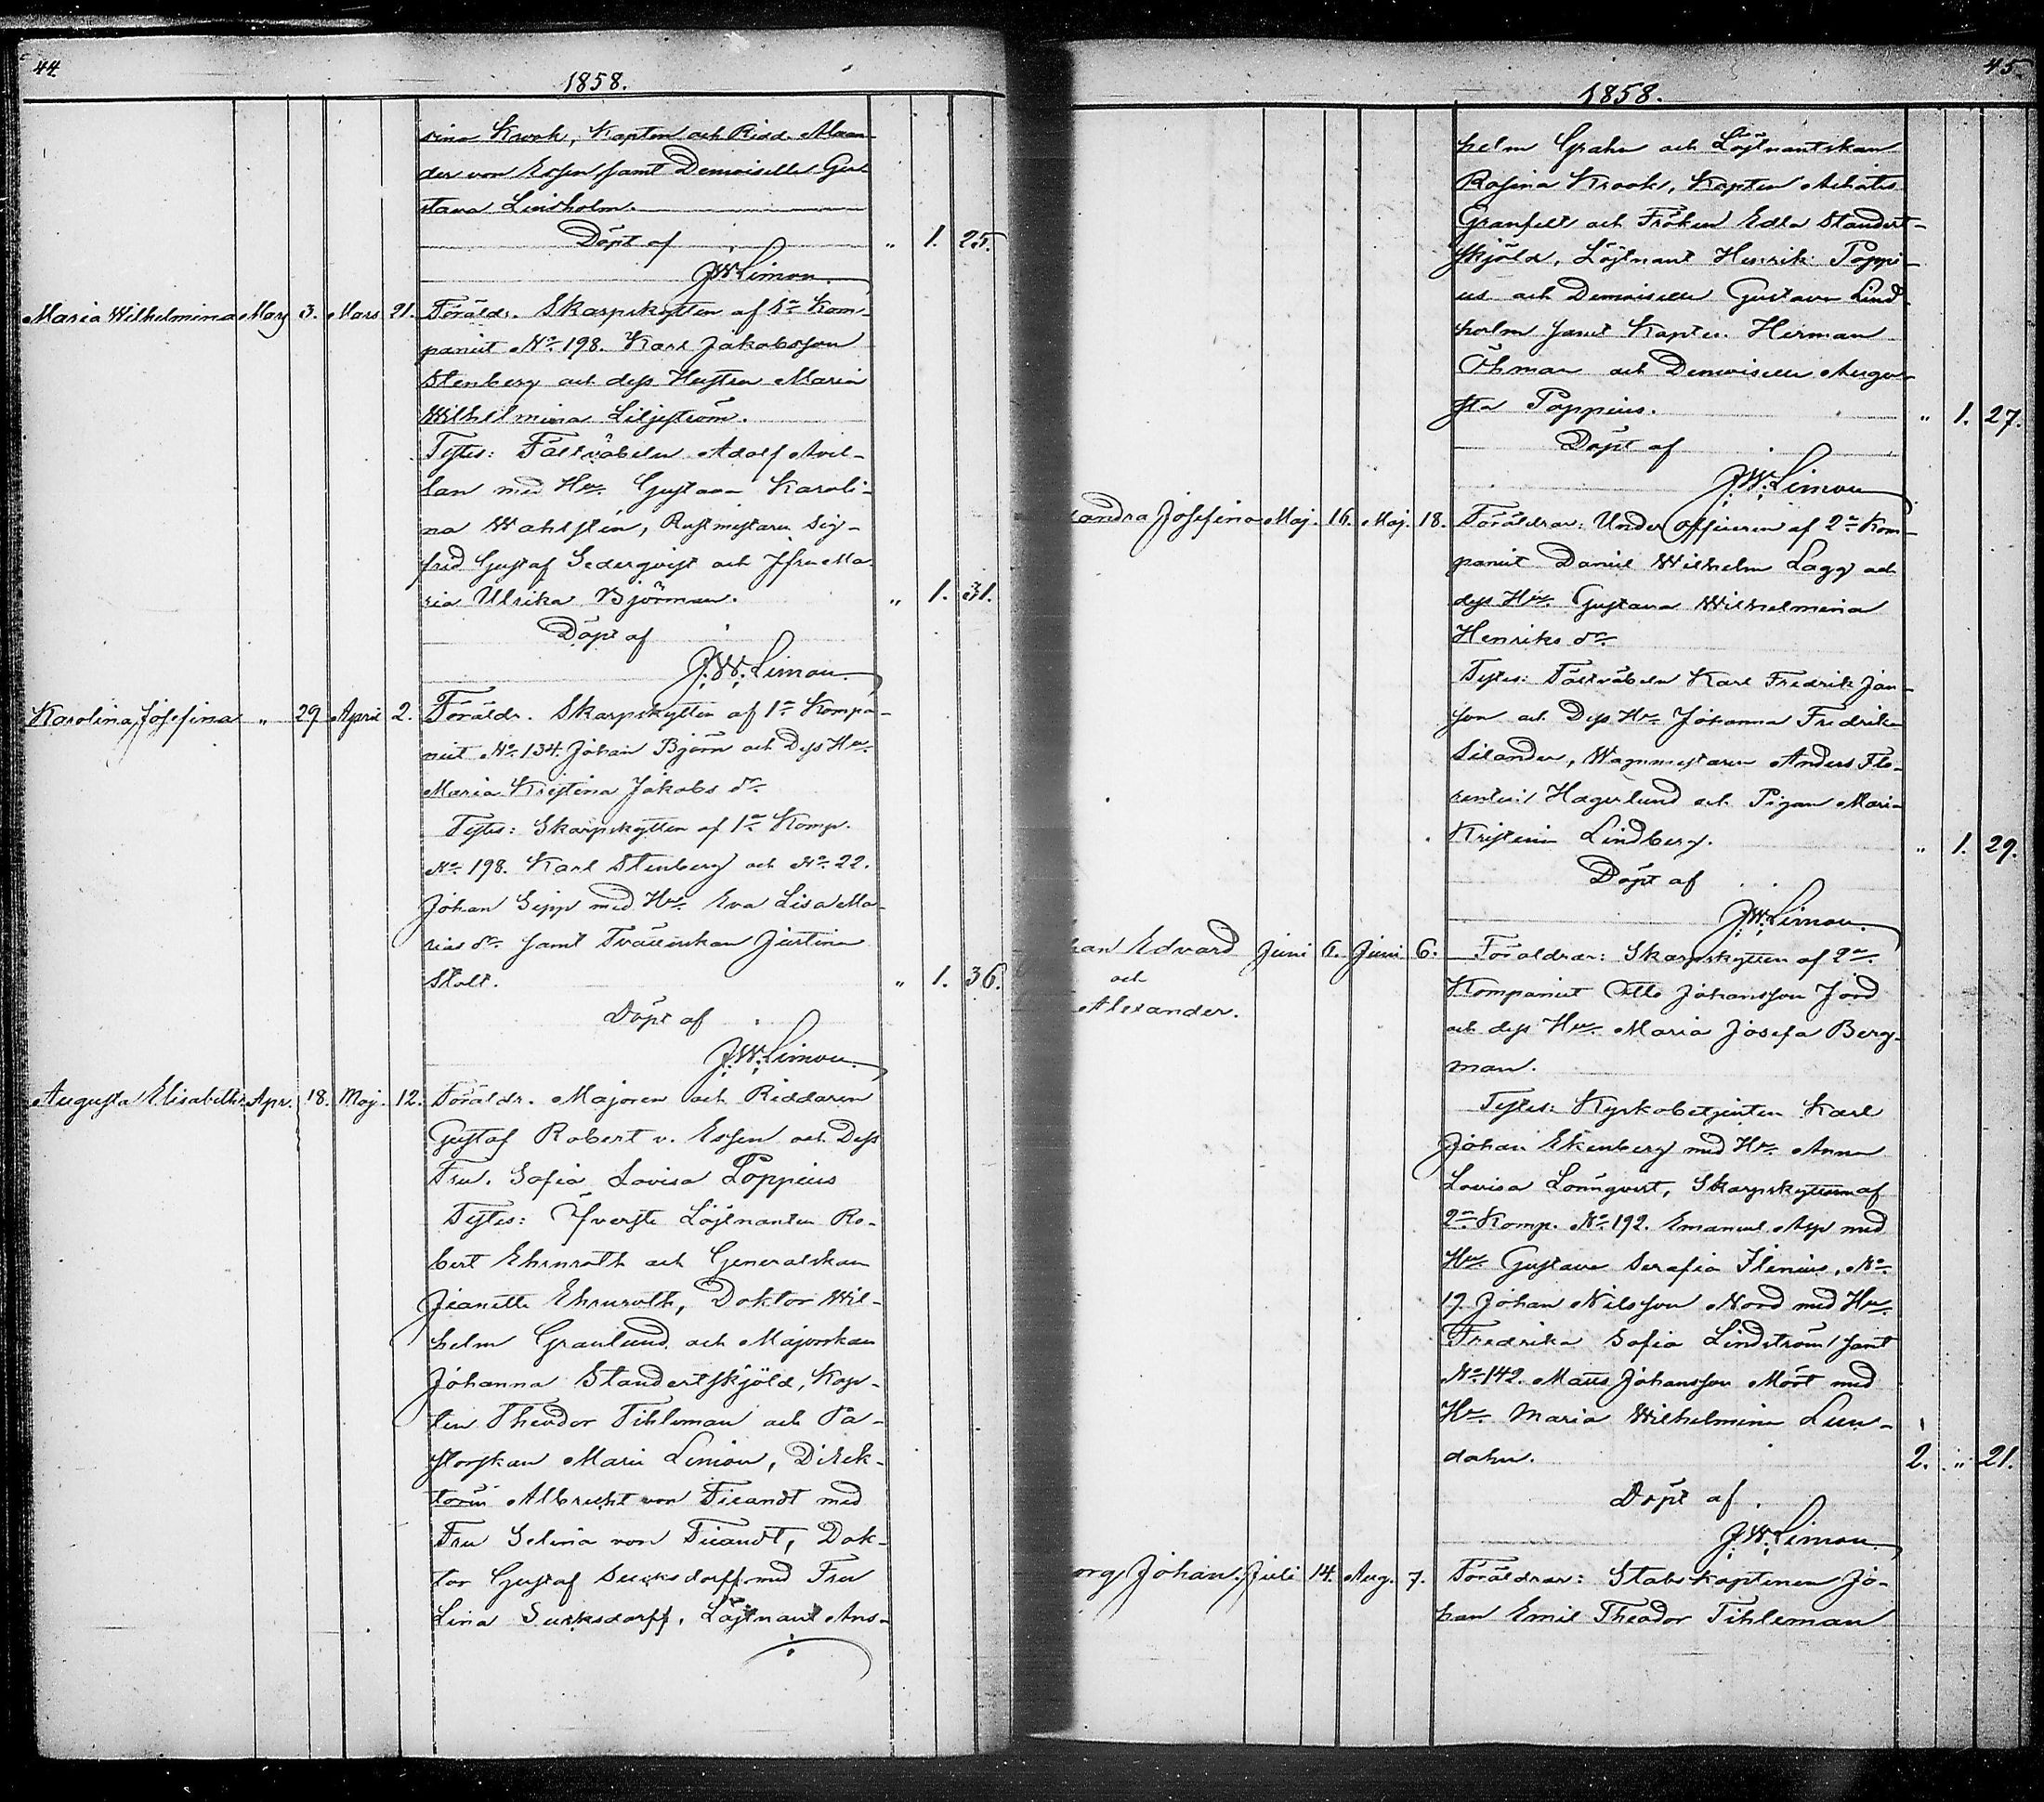 44.
1858.
sina Krook, Kapten och Ridd. Alexan-
der von Essen, samt Demoiselle Gus-
tava Lindholm.
Döpt af " 1. 25.
J.W. Limon
Maria Wilhelmina Mars 3. Mars 21. Föräldr. Skarpskytten af 1a Kom-
paniet No. 198. Karl Jakobsson
Stenberg och dess Hustru Maria
Wilhelmina Liljeström.
Testes: Fältväbeln Adolf Avel-
lan med Hu. Gustava Karoli-
na Wahlstén, Rustmestaren Sig-
frid Gustaf Sederqvist och Jfru Ma-
ria Ulrika Björman. " 1. 31.
Döpt af
J.W. Limon.
Karolina Josefina " 29 April 2. Föräldr. Skarpskytten af 1a Kompa-
niet No. 134. Johan Björn och Dess Hu.
Maria Kristina Jakobs dr.
Testes: Skarpskytten af 1a Komp.
No. 198. Karl Stenberg och No. 22.
Johan Sipp med Hu. Eva Lisa Ma-
rias dr. samt Justina
Stolt. " 1. 36.
Döpt af
J.W. Limon.
Augusta Elisabeth. Apr. 18. Maj. 12. Föräldr. Majoren och Riddaren
Gustaf Robert v. Essen och Dess
Fru. Sofia Lovisa Poppius
Testes: Öfverste Löjtnanten Ro-
bert Ehrnroth och Generalskan
Jeanette Ehrnroth, Doktor Wil-
helm Granlund och Majorskan
Johanna Standertskjöld, Kap-
ten Theodor Tihleman och Pa-
storskan Marie Limon, Direk-
tören Albrecht von Fieandt med
Fru Selina von Fieandt, Dok-
tor Gustaf Sucksdorff med Fru
Lina Sucksdorff, Löjtnant Ans-
45.
1858.
helm Grahn och Löjtnantskan
Rosina Krook, Kapten Achates
Granfelt och Fröken Edla Standert-
skjöld, Löjtnant Henrik Poppi-
us och Demoiselle Gustava Lind-
holm samt Kapten Herman
Öhman och Demoiselle Augu-
sta Poppius. " 1. 27.
Döpt af
J.W. Limon
andra Josefina Maj. 16. Maj. 18. Föräldrar: Under Officeren af 2a Kom-
paniet Daniel Wilhelm Lagg och
dess Hu. Gustava Wilhelmina
Henriks dr.
Testes: Fältväbeln Karl Fredrik Jan-
son och Dess Hu. Johanna Fredrika
Silander, Wagnmestaren Anders Flo-
rentin Hagerlund och Pigan Maria
Kristina Lindberg. " 1. 29.
Döpt af
J.W. Limon.
han Edvard Juni 6. Föräldrar: Skarpskytten af 2a
och Kompaniet Otto Johansson Jord
Alexander. och dess Hu. Maria Josefa Berg-
man.
Testes: Kyrkobetjenten Karl
Johan Ekenberg med Hu. Anna
Lovisa Lönnqvist, Skarpskyttarne af
2a Komp. No. 192. Emanuel Asp med
Hu. Gustava Serafia Flenius, No.
19. Johan Nilsson Nord med Hu.
Fredrika Sofia Lindström samt
No. 142. Matts Johansson Mört med
Hu. Maria Wilhelmina Lun-
dahn. 2. " 21.
Döpt af
J.W. Limon
org Johan. Juli 14. Aug. 7. Föräldrar: Stabs kaptenen Jo-
han Emil Theodor Tihleman